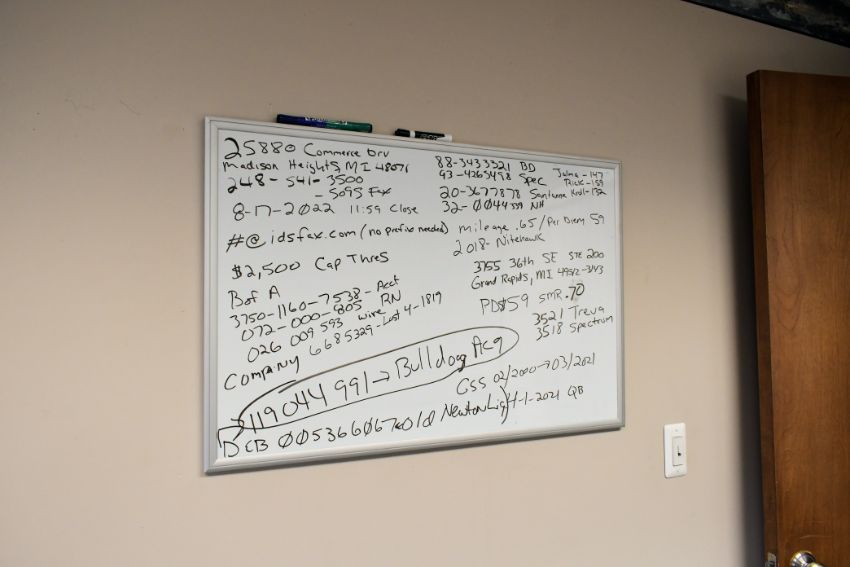 25880 Commerce Drv
Madison Heights, MI 48071
248-541-3500
-5095 Fax
8-17-2022 11:59 Close
#@idsfax.com (no prefix needed)
$2,500 Cap Thres
B of A
3750-1160-7538-Acct
072-000-805 RN
026 009 593 wire
Company 6685329-Last 4-1819
119044991→Bulldog Acq
DCB 005366067 old Newton Lig
88-3433321 BD
93-4265498 Spec
20-3677878 Santanna
32-0044559 NH
Julma-147
Rick-159
Kroll-132
mileage .65/Per Diem 59
2018-Nitehawk
3755 36th SE STE 200
Grand Rapids, MI 49512-
PD$59 SMR .70
3521 Treva
3518 Spectrum
CSS 02/2000→03/2021
4-1-2021 QB